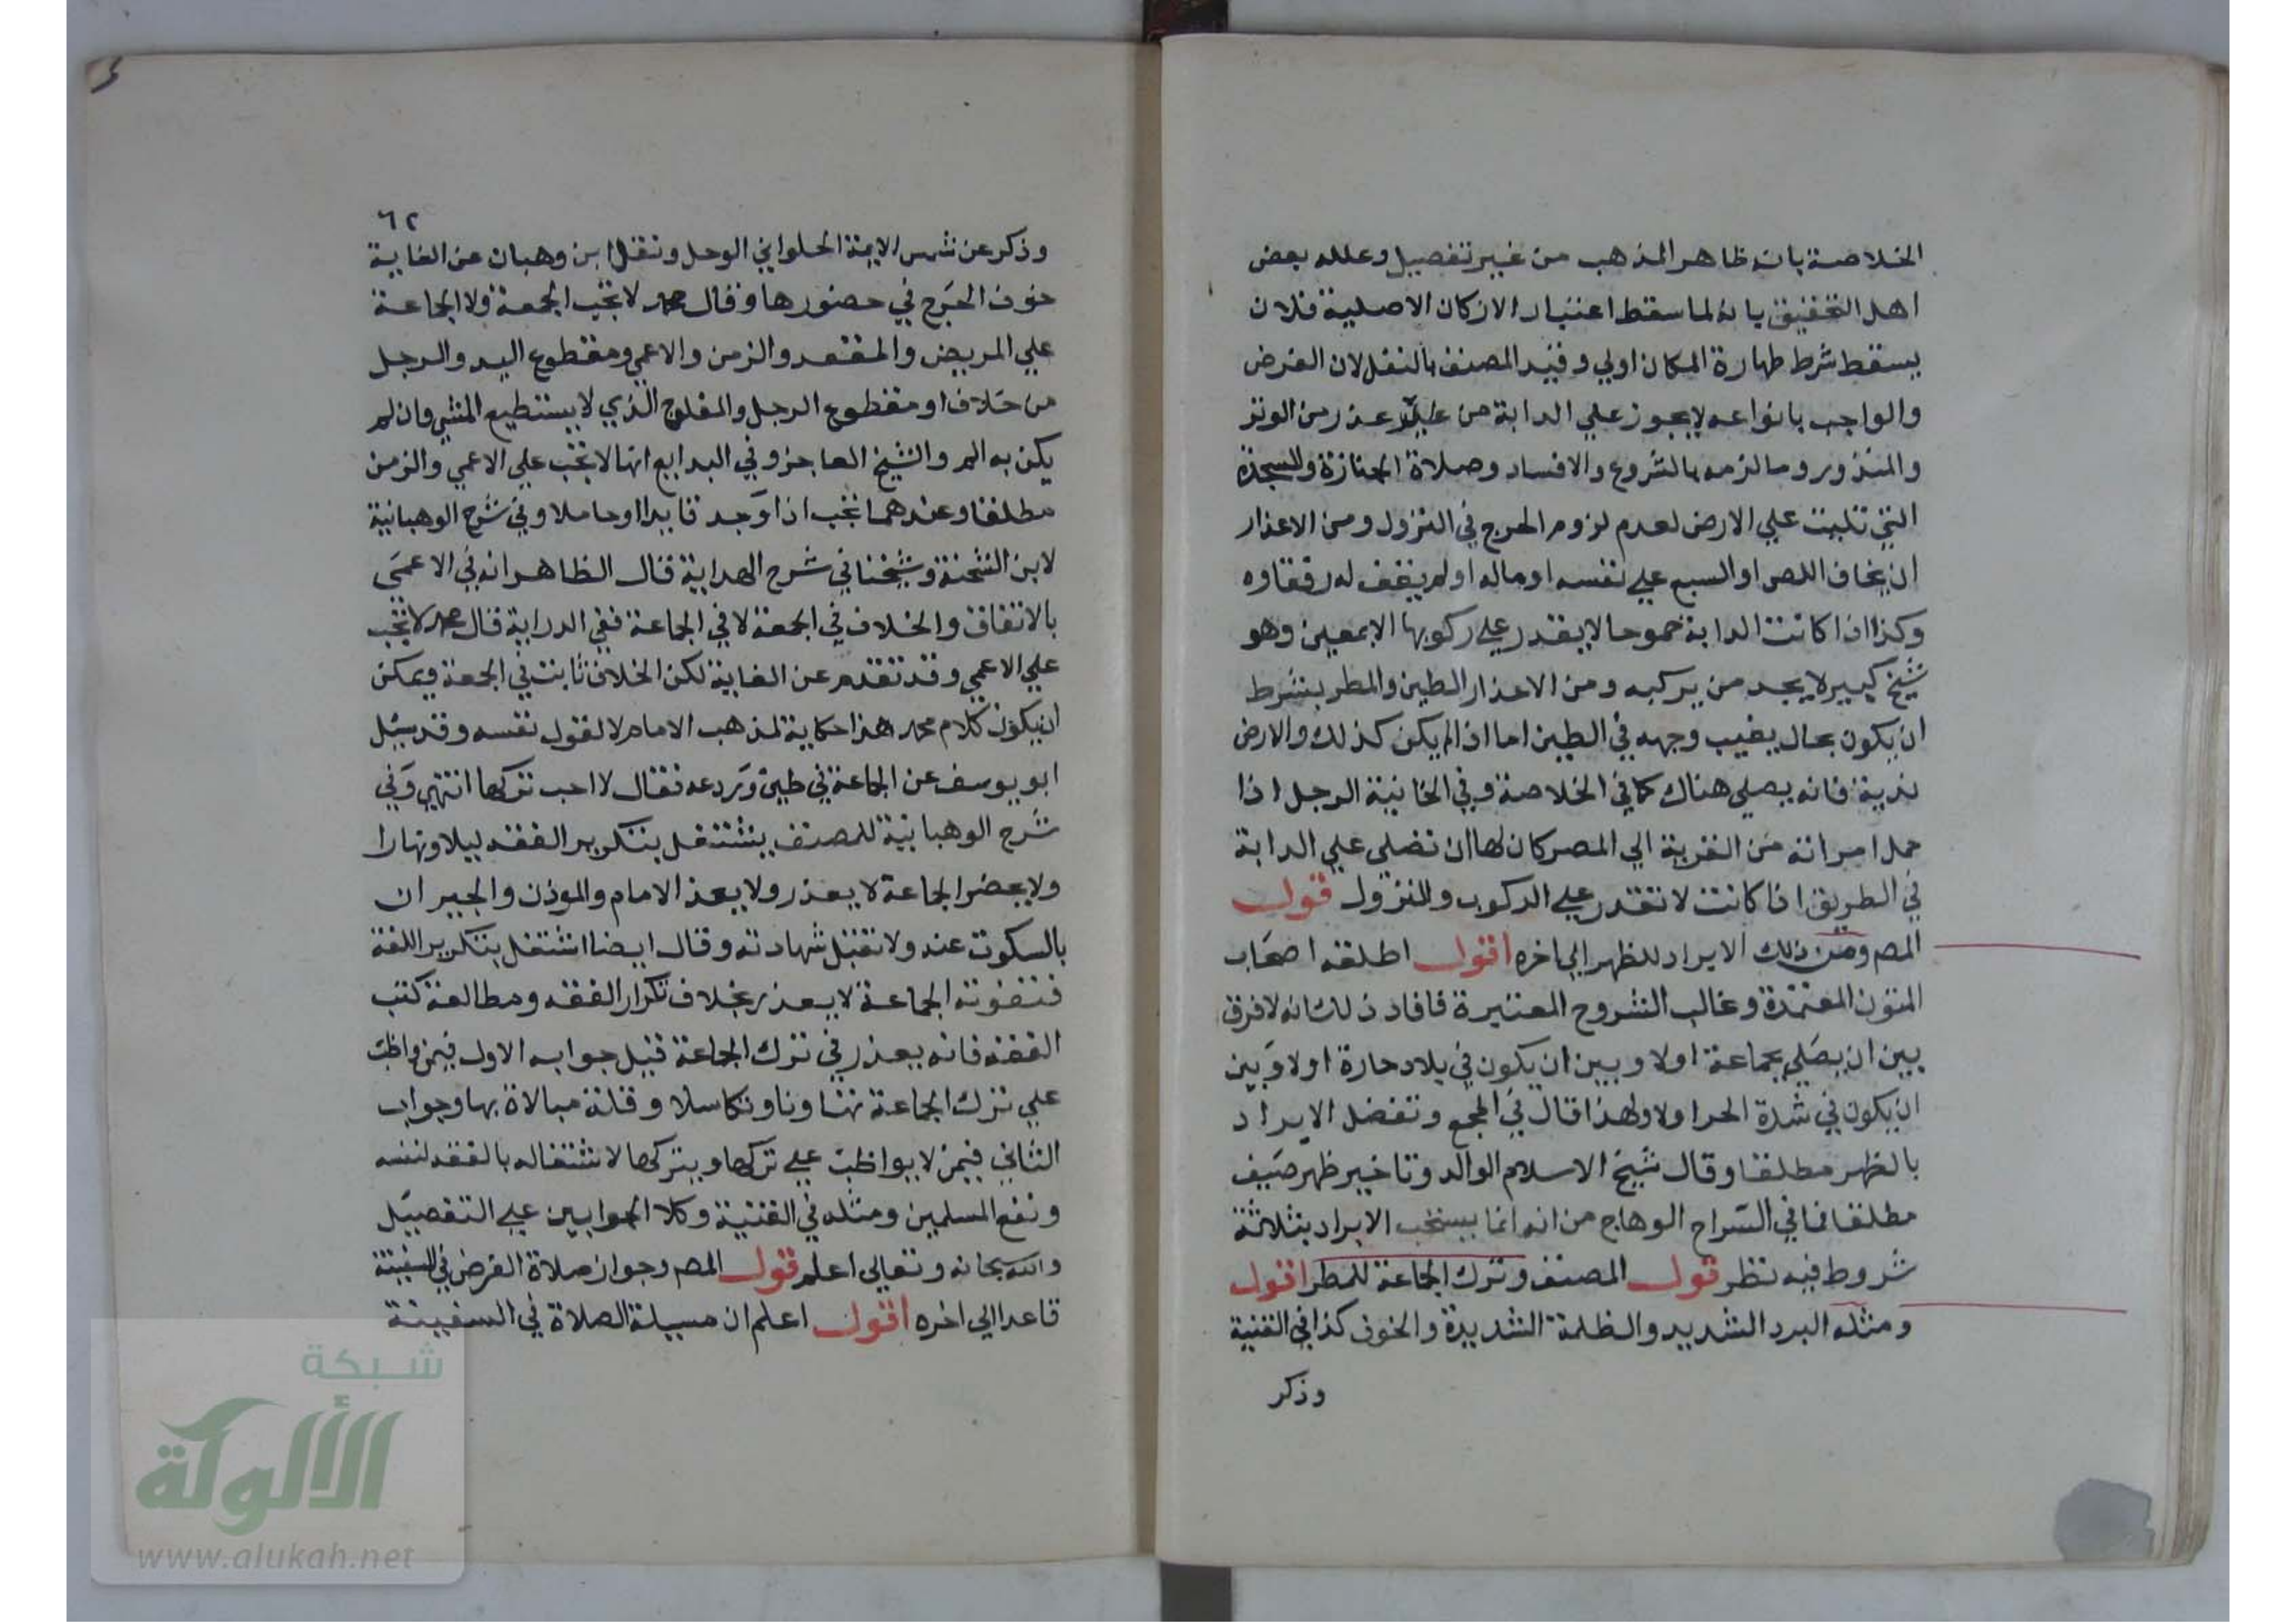 الخلاصة بانه ظاهر المذهب من غير تفصيل وعلله بعض
اهل التحقيق بانه لما سقط اعتبار الاركان الاصلية فلان
يسقط شرط طهارة المكان اولي وقيد المصنف بالنفل لان الفرض
والواجب بانواعه لا يجوز علي الدابة من غير عذر من الوتر
والمنذور وما لزمه بالشروع والافساد وصلاة الجنازة والسجدة
التي تليت علي الارض لعدم لزوم الحرج في النزول ومن الاعذار
ان يخاف اللص او السبع علي نفسه او ماله او لم يقف له رفقاوه
وكذا اذا كانت الدابة جموحا لا يقدر علي ركوبها الا بمعين وهو
شيخ كبير لا يجد من يركبه ومن الاعذار الطين والمطر بشرط
ان يكون بحال يغيب وجهه في الطين اما اذا لم يكن كذلك والارض
ندية فانه يصلي هناك كما في الخلاصة وفي الخانية الرجل اذا
حمل امراته من القرية الي المصر كان لها ان تصلي علي الدابة
في الطريق اذا كانت لا تقدر علي الركوب والنزول قوله
المص ومن ذلك الايراد للظهر الي اخره اقول اطلقه اصحاب
المتون المعتمدة وغالب الشروح المعتبرة فافاد ذلك انه لا فرق
بين ان يصلي بجماعة اولا وبين ان يكون في بلاد حارة اولا وبين
ان يكون في شدة الحر اولا ولهذا قال في المجمع وتفضل الايراد
بالظهر مطلقا وقال شيخ الاسلام الوالد وتاخير ظهر صيف
مطلقا فما في السراج الوهاج من انه انما يستحب الابراد بثلاثة
شروط فيه نظر قوله المصنف وترك الجماعة للمطر اقول
ومثله البرد الشديد والظلمة الشديدة والخوف كذا في القنية
وذكر
٦٢
وذكر عن شمس الايمة الحلواني الوحل ونقل ابن وهبان عن الغاية
خوف الحرج في حضورها وقال محمد لا تجب الجمعة ولا الجماعة
علي المريض والمقعد والزمن والاعمي ومقطوع اليد والرجل
من خلاف او مقطوع الرجل والمفلوج الذي لا يستطيع المشي وان لم
يكن به الم والشيخ العاجز وفي البدايع انها لا تجب علي الاعمي والزمن
مطلقا وعندهما تجب اذا وجد قايدا او حاملا وفي شرح الوهبانية
لابن الشحنة وشيخنا في شرح الهداية قال الظاهر انه في الاعمي
بالاتفاق والخلاف في الجمعة لا في الجماعة ففي الدراية قال محمد لا تجب
علي الاعمي وقد تقدم عن الغاية لكن الخلاف ثابت في الجمعة ويمكن
ان يكون كلام محمد هذا حكاية لمذهب الامام لا لقول نفسه وقد سيل
ابو يوسف عن الجماعة في طين وردعه فقال لا احب تركها انتهي وفي
شرح الوهبانية للمصنف يشتغل بتكرير الفقه ليلا ونهارا
ولا يحضر الجماعة لا يعذر ولا يعذ الامام والموذن والجيران
بالسكوت عنه ولا تقبل شهادته وقال ايضا اشتغل بتكرير اللغة
فتفوته الجماعة لا يعذر بخلاف تكرار الفقه ومطالعة كتب
الفقه فانه يعذر في ترك الجماعة قيل جوابه الاول فيمن واظب
علي ترك الجماعة تهاونا وتكاسلا وقلة مبالاة بها وجواب
الثاني فيمن لا يواظب علي تركها ويتركها لاشتغاله بالفقه لنفسه
ونفع المسلمين ومثله في القنية وكلا الجوابين علي التفصيل
والله سبحانه وتعالي اعلم قوله المص وجواز صلاة الفرض في السفينة
قاعدا الي اخره اقول اعلم ان مسيلة الصلاة في السفينة
شبكة
الألوكة
www.alukah.net